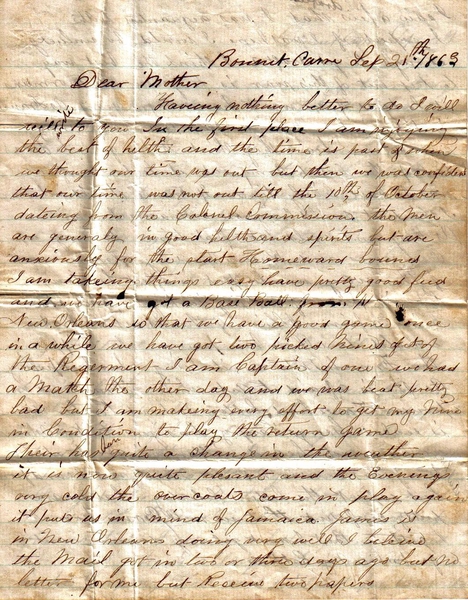 Bonnet Carre Sep 21th /1863
Dear Mother
Having nothing better to do I will
write to you In the first place I am enjoying
the best of helth and the time is past when
we thought our time was out but then we was confident
that our time was not out till the 10th of October
dateing from the Colonel Commission the men
are generaly in good helth and spirits but are
anxiously for the start Homeward bound
I am takeing things easy have pretty good feed
and we have got a Base Ball from
New Orleans so that we have a good game once
in a while we have got two picked Nines out of
the Regiment I am Captain of one we had
a Match the other day and we was beat pretty
bad but I am makeing every effort to get my Nine
in Condition to play the return Game
Their has been quite a change in the weather
it is now quite plesent and the Evening
very cold the overcoats come in play again
it puts us in mind of Jamaica James is
in New Orleans doing very well I believe
the Mail got in two or three days ago but no
letter for me but Receive two papers